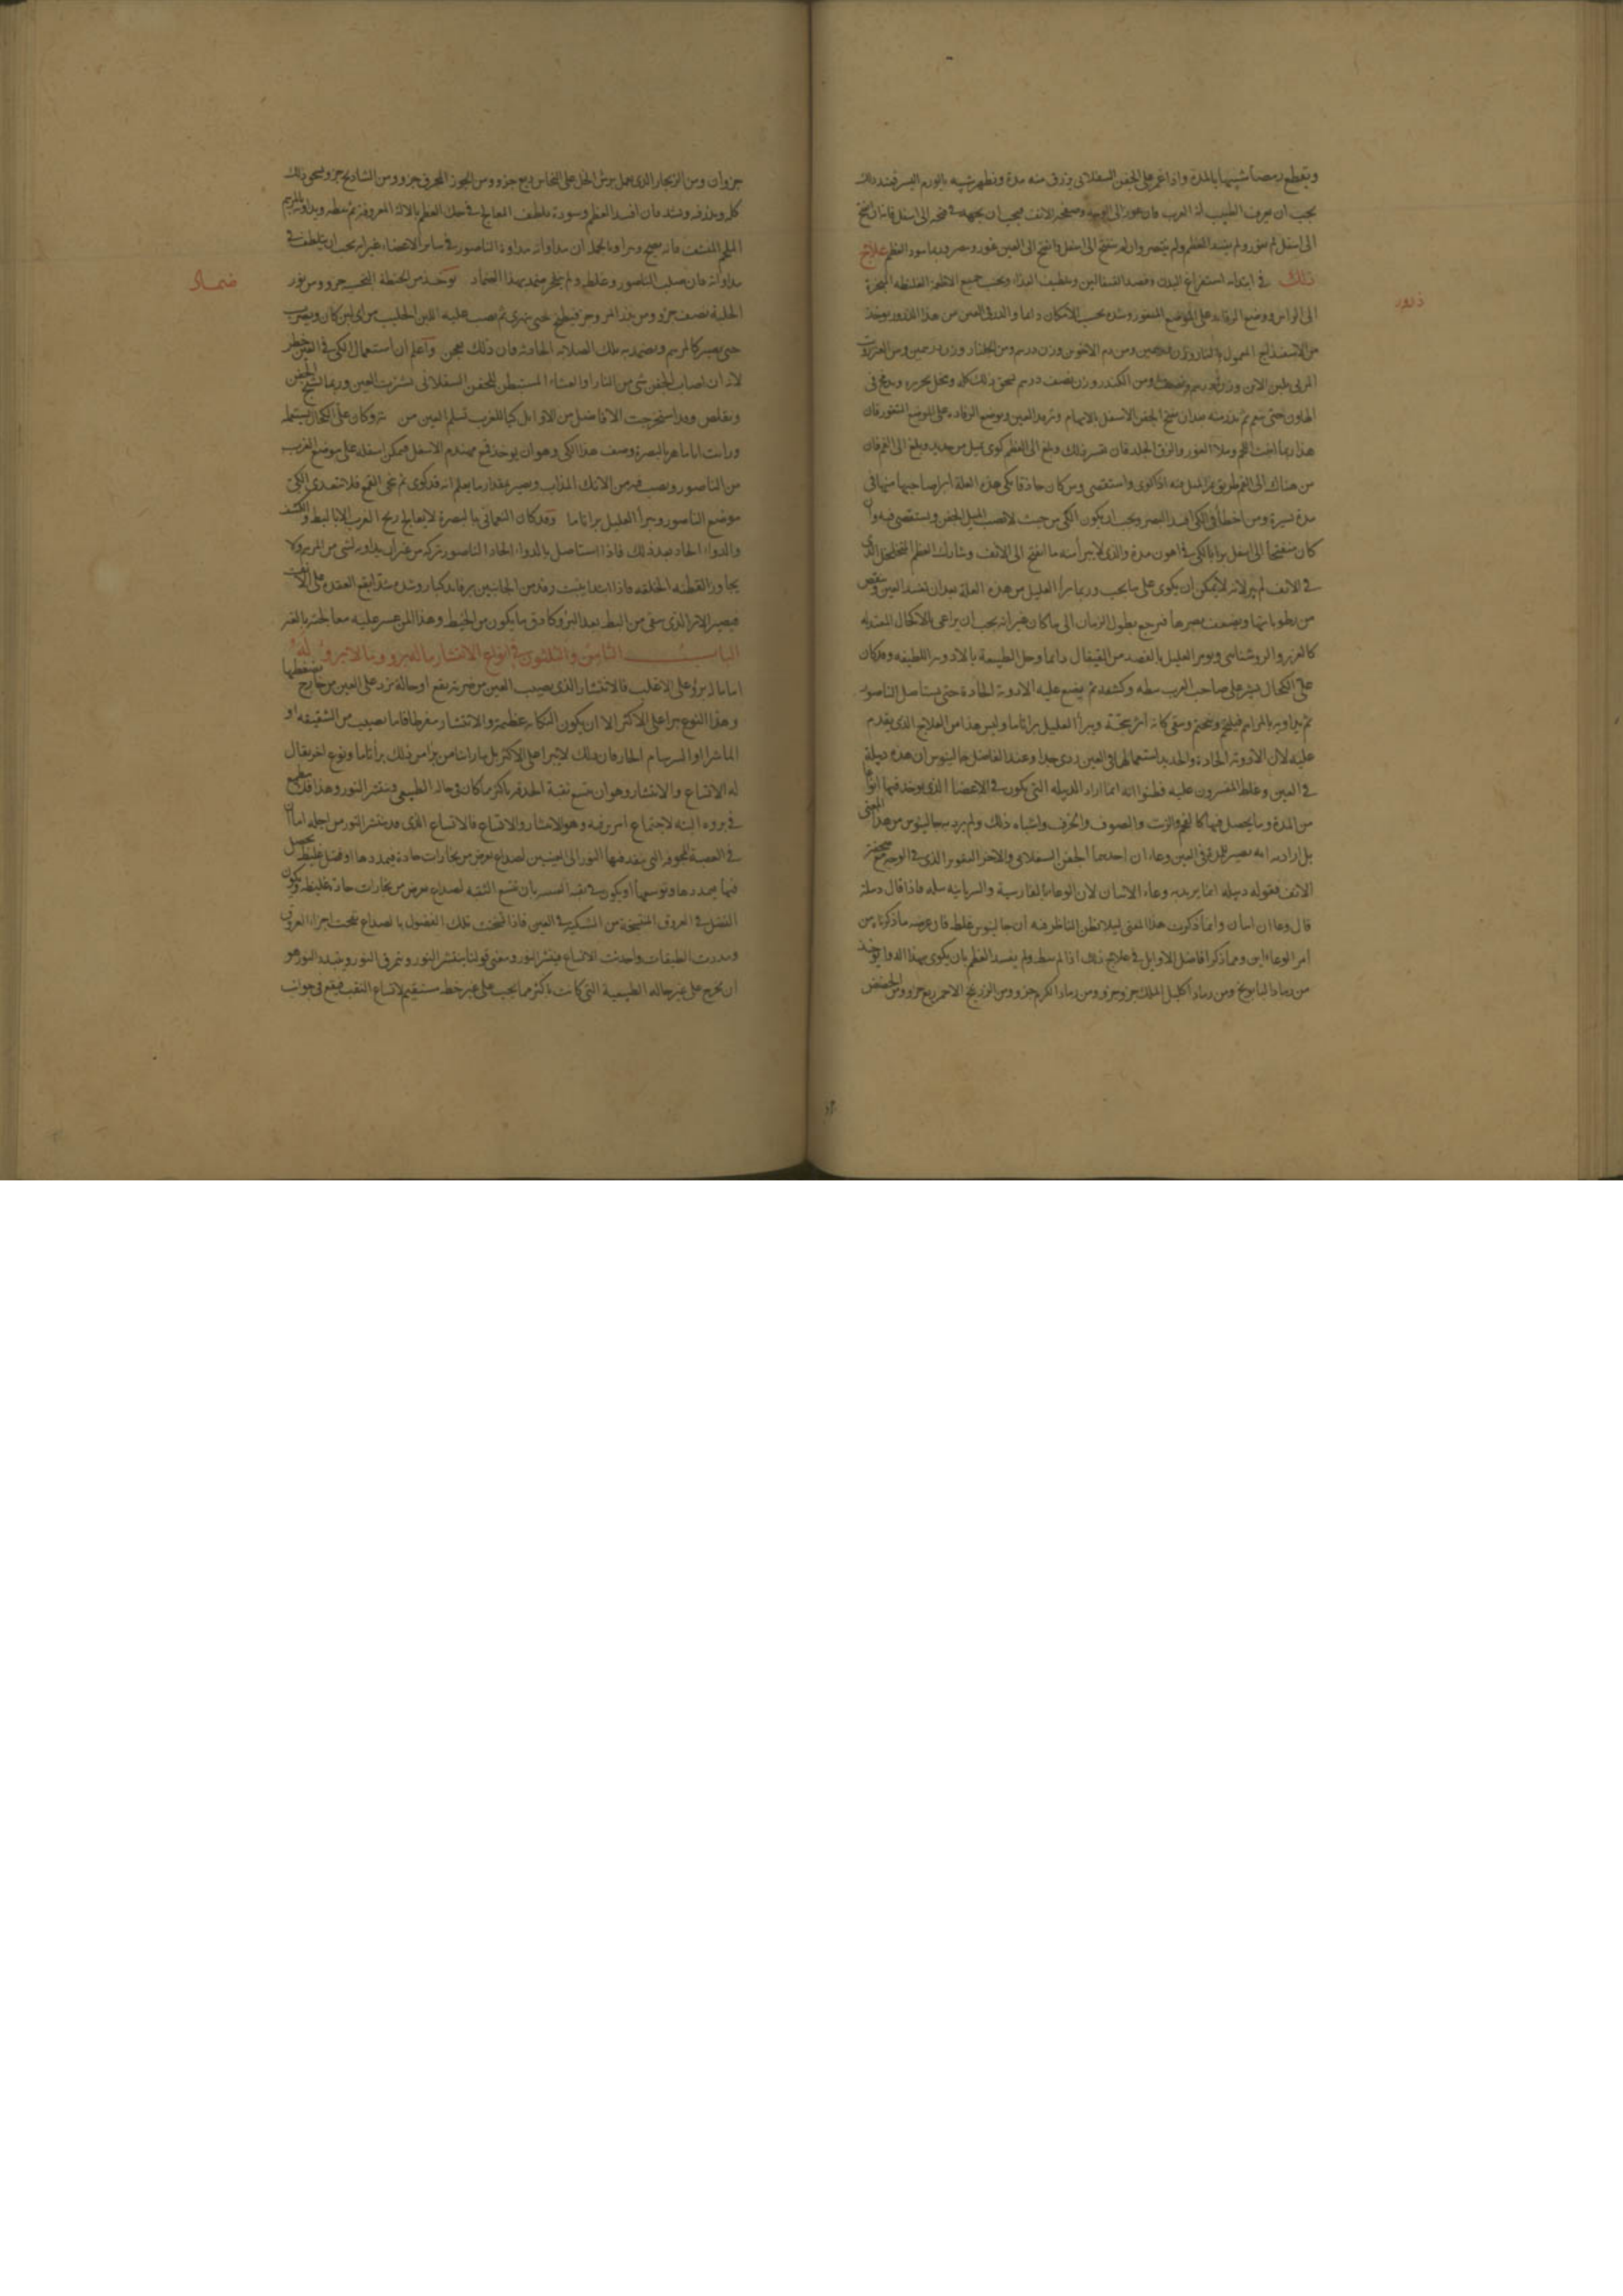 ويقطع رمصا شبيها بالمدة واذا غمز على الجفن السفلانى وزرق منه مدة ويظهر شبيه بالورم اليسير فعند ذلك
يجب ان يعرف الطبيب انه الغرب فان غور الى الوجه وصفحة الانف فيجب ان يجهد فى فتحه الى اسفل فانه ان انفتح
الى اسفل ثم يغور ولم يفسد العظم ولم يتنصر وان لم ينفتح الى اسفل وانفتح الى العين غور وربما سود العظم علاج
ذلك فى ابتدائه استفراغ البدن وفصد القيفالين وتلطيف الغذا وتجنب جميع الاطعمة الغليظة المبخرة
ذرور
الى الراس ووضع الرفايد على الموضع المتغور وشده بحسب الامكان دائما والذر فى العين من هذا الذرور يوخذ
من الاسفيذاج المعمول بالنار وزن درهمين ومن دم الاخوين وزن درهم ومن الجلنار وزن درهمين ومن العنزروت
المربى بلبن الاتن وزن درهم ونصف ومن الكندر وزن نصف درهم يسحق ذلك كله وينخل بحريره ويدق فى
الهاون حتى ينعم ثم يذر منه بعد ان يفتح الجفن الاسفل بالابهام وتبرد العين ويوضع الرفاده على الموضع المتغور فان
هذا ربما انبت اللحم وملا الغور والزق الجلد فان تعسر ذلك وبلغ الى العظم كوى بميل من حديد ويبلغ الى الفم فان
من هناك الى الفم طريق يمر الميل منه اذا كوى واستقصى ومن كان حاذقا بكى هذه العلة ابرا صاحبها منها فى
مدة يسيرة ومن اخطأ فى الكى افسد البصر ويجب ان يكون الكى من حيث لا يصيب الميل الجفن ويستقصى فيه وان
كان منفتحا الى اسفل برا بالكى فى اهون مدة والذى لا يبرأ منه ما انفتح الى الانف وشارك العظم المتخلخل الذى
فى الانف لم يبر لانه لا يمكن ان يكوى على ما يجب وربما برأ العليل من هذه العلة بعد ان تفسد العين وينقص
من رطوباتها ويضعف بصرها فيرجع بطول الزمان الى ما كان غير انه يجب ان يراعى بالاكحال المعتدله
كالعزيز والروشناى ويومر العليل بالفصد من القيفال دائما وحل الطبيعة بالادوية اللطيفه وقد كان
على الكحال يشير على صاحب الغرب ببطه وكشفه ثم يضع عليه الادوية الحادة حتى يستاصل الناصور
ثم يداويه بالمراهم فيلتحم ويختم ويبقى كانه اثر عجنة ويبرأ العليل برا تاما وليس هذا من العلاج الذى يقدم
عليه لان الادوية الحادة والحديد استعمالها فى العين ردى جدا وعند الفاضل جالينوس ان هذه دبيلة
فى العين وغلط المفسرون عليه فظنوا انه انما اراد الدبيله التى يكون فى الاعضا الذى يوخذ فيها انواعا
من المدة وما يحصل فيها كالفحم والزيت والصوف والخزف واشباه ذلك ولم يرد به جالينوس من هذا المعنى
بل اراد به انه يصير للمدة فى العين وعاءان احدهما الجفن السفلانى والاخر التقوير الذى فى الوجه مع صفحة
الانف فقوله دبيله انما يريد به وعاء الاثنان لان الوعا بالفارسية والسريانية سله فاذا قال دبيلة
قال وعاان اثنان وانما ذكرت هذا المعنى ليلا يظن الناظر فيه ان جالينوس غلط فان غرضه ما ذكرناه من
امر الوعاءاين ومما ذكر افاضل الاوايل فى علاج ذلك اذا لم يبط ولم يفسد العظم بان يكوى بهذا الدوا يوخذ
من رماد البابونج ومن رماد اكليل الملك جز وجزو ومن رماد الكرم جزو ومن الزرنيخ الاحمر ربع جزو ومن الحضض
جزوان ومن الزنجار الذى عمل برش الخل على النحاس ربع جزو ومن الجوز المحرق جزو ومن الشادنج جزو يسحق ذلك
كله ويذر فيه ويشد فان افسد العظم وسوده فلطف المعالج فى حك العظم بالاله المعروفة ثم ببطه ويداويه بالمرهم
الملحم المنشف فانه يصح ويبرا وبالجمله ان مداواته مداوة الناصور فى ساير الاعضاء غير انه يجب ان يتلطف فى
مداواته فان صلب الناصور وغلظ ولم ينفجر ضمد بهذا الضماد يوخذ من الحنطة المنتخب جزو ومن بزر
ضماد
الحلبة نصف جزو ومن بزر المرو جز فيطبخ حتى يتهرى ثم يصب عليه اللبن الحليب من اى لبن كان ويضرب
حتى يصير كالمرهم ويضمد به تلك الصلابه الحادثة فان ذلك يبخن واعلم ان استعمال الكى فى العين خطر
لانه ان اصاب الجفن شى من النار او الغشاء المستبطن للجفن السفلانى تشتزت العين وربما تشنج الجفن
وتقلص وقد استخرجت الافاضل من الاوايل كيا للغرب تسلم العين من وكان على الكحال يستعمله
ورايت اباماهر بالبصرة وصف هذا الكى وهو ان يوخذ قمع مهندم الاسفل فيمكن اسفله على موضع الغرب
من الناصور ويصب فيه من الانك المذاب ويصبر بمقدار ما يعلم انه قد كوى ثم نحى القمع فلا يتعدى الكى
موضع الناصور ويبرأ العليل برا تاما وقد كان النعمانى بالبصرة لا يعالج ريح الغرب الا بالبط والكشف
والدواء الحاد بعد ذلك فاذا استاصل بالدواء الحاد الناصور تركه من غير ان يداويه بشى من المرهم ولا
يجاوز القطنه الخلقه فاذا ابتدا ينبت رفده من الجانبين برفايد كبار وشده شدا يقع العقده على الانف
فيصير الاثر الذى يبقى من البط بعد البرؤ كادق ما يكون من الخيط وهذا لمن عسر عليه معالجته بالغمز
الباب الثامن والثلثون فى انواع الانتشار ما له برو وما لا برو له
اما ما له برؤ على الاغلب فالانتشار الذى يصيب العين من ضربة يقع او حالة ترد على العين من خارج يضغطها
وهذا النوع يبرا على الاكثر الا ان يكون النكايه عظيمة والانتشار مفرطا فاما ما يصيب من الشقيقه او
الماشرا او السرسام الحار فان ذلك لا يبرا على الاكثر بل ما راينا من برأ من ذلك برأ تاما ونوع اخر يقال
له الاتساع والانتشار وهو ان يتسع ثقبة الحدقه باكثر مما كان فى حالها الطبيعى وينتشر النور وهذا فلا يطمع
فى بروه البته لاجتماع امرين فيه وهو الانتشار والاتساع فالاتساع الذى قد ينتشر النور من اجله اما ان
فى العصبة المجوفه التى ينفذ فيها النور الى العينين لصداع يعرض من بخارات حادة فيمددها او فضل غليظ يحصل
فيها فيمددها وتوسعها او يكون فى ثقبة العنبيه بان يتسع الثقبه لصداع يعرض من بخارات حادة غليظه ويكون
الفضل فى العروق المنتسجة من الشبكيه فى العين فاذا انتفخت تلك الفضول بالصداع تفتحت اجزاء العروق
ومددت الطبقات واحدثت الاتساع فينتشر النور ومعنى قولنا ينتشر النور ويتمزق النور ويتبدد النور هو
ان يخرج على غير حاله الطبيعية التى كانت باكثر مما يجب على غير خط مستقيم لاتساع الثقب فيقع فى جوانب